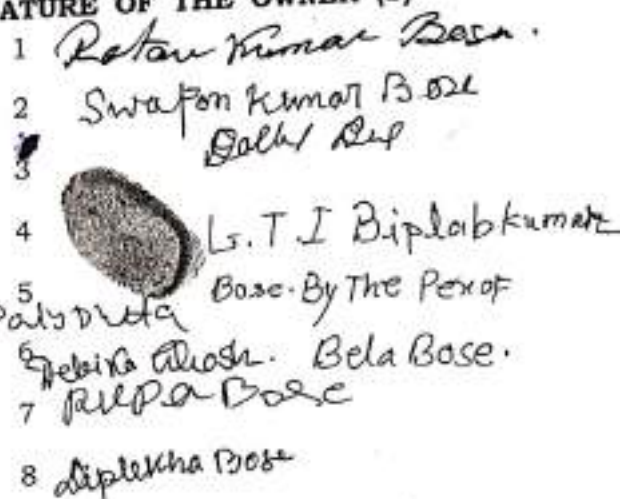 ATURE OF THE OWNER (S)
1 Ratan Kumar Bose.
2 Swapon Kumar Bose
3
4 L.T.I Biplab kumar
5 Bose. By The Pen of
Dutta
6 Debika Ghosh. Bela Bose.
7 RUPA Bose
8 Diplekha Bose